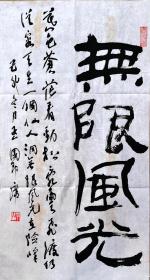 無限風光
暮色蒼茫看勁松亂雲飛渡仍
從容天生一個仙人洞無限風光在險峰